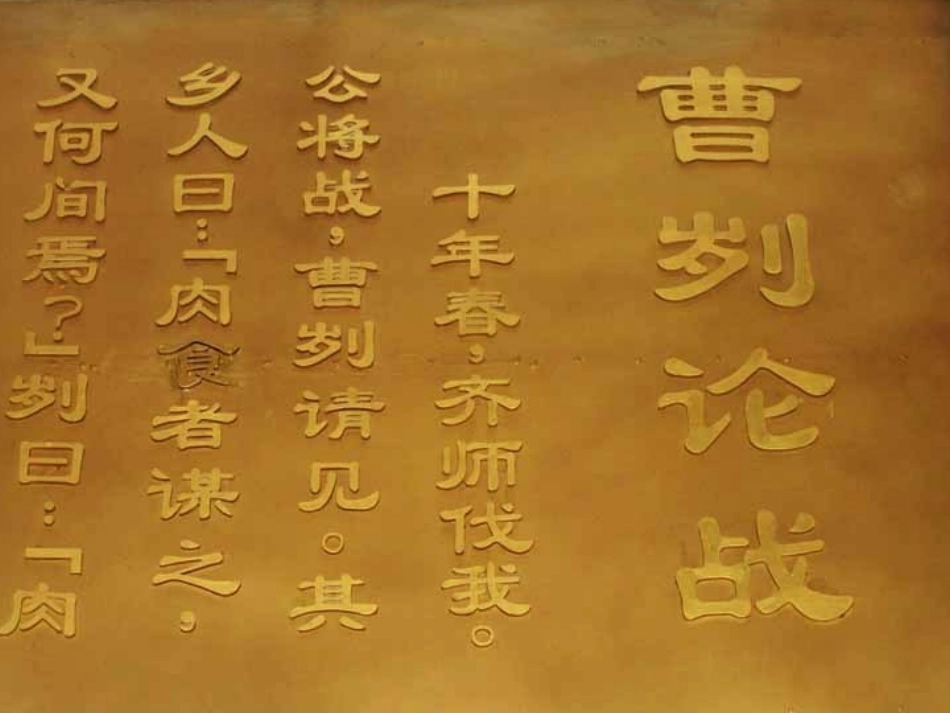 曹刿论战
十年春，齐师伐我。
公将战，曹刿请见。其
乡人曰：「肉食者谋之，
又何间焉？」刿曰：「肉